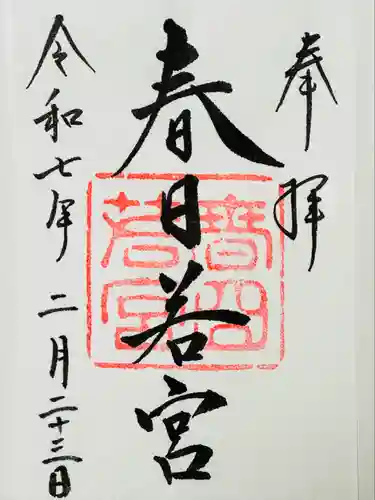 奉拝
春日若宮
令和七年二月二十三日
春日若宮